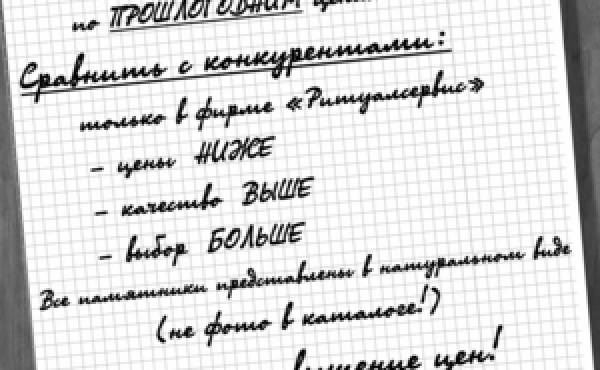 по ПРОШЛОГОДНИМ
Сравнить с конкурентами:
только в фирме «Ритуалсервис»
- цены НИЖЕ
- качество ВЫШЕ
- выбор БОЛЬШЕ
Все памятники представлены в натуральном виде
(не фото в каталоге!)
цен!